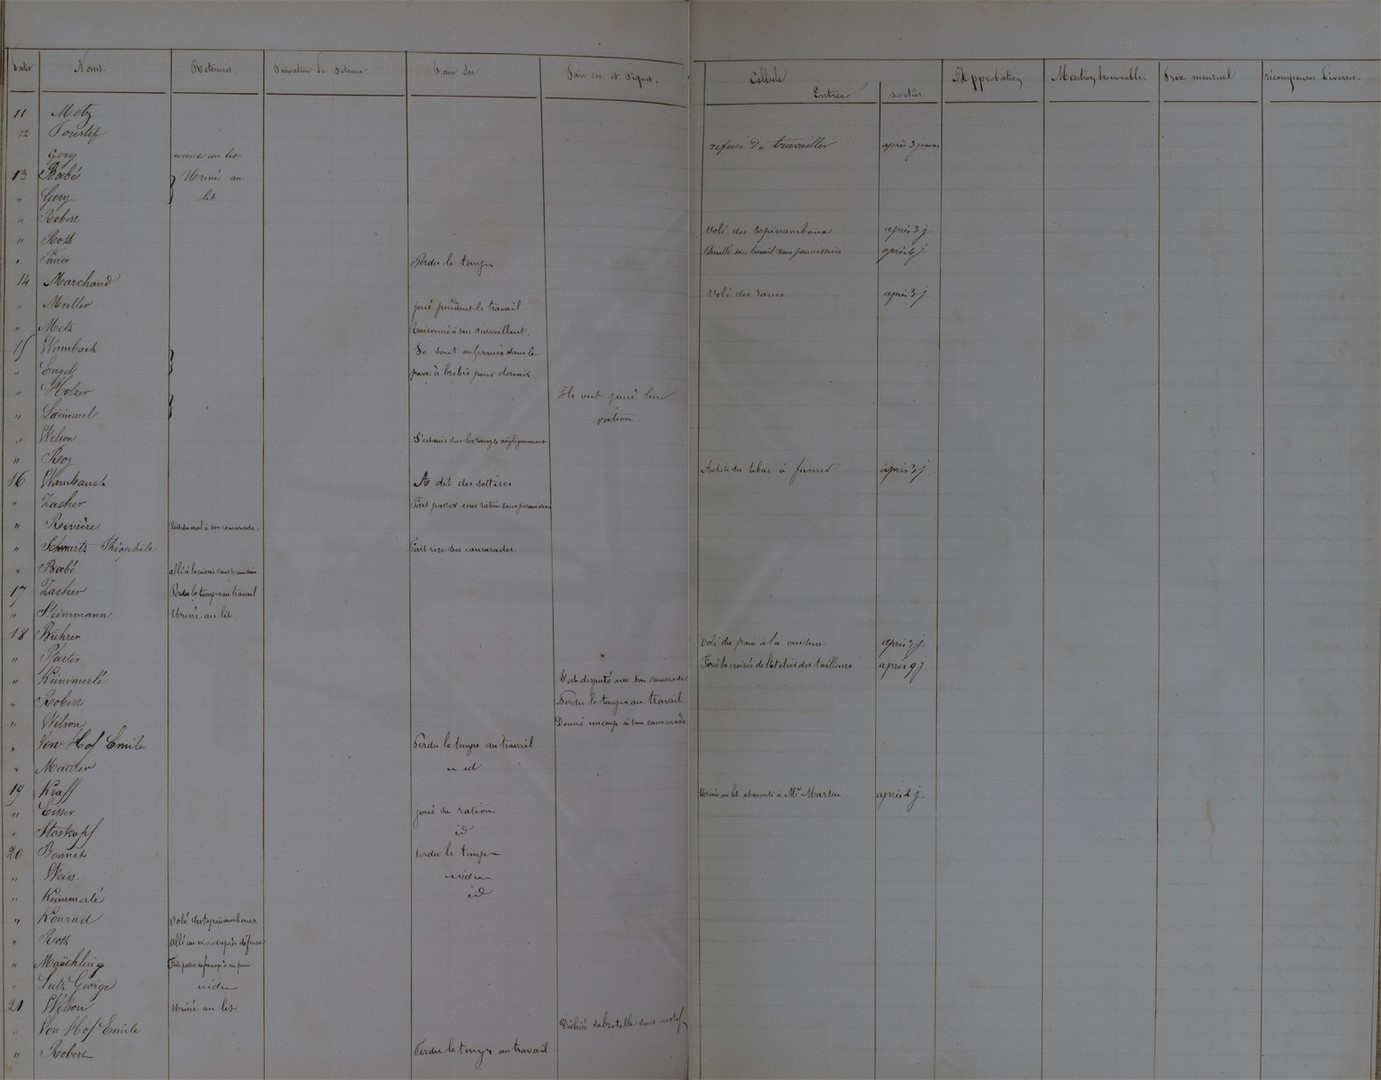 Dates Noms. Retenues Privation de Pain sec Pain sec et Piquet. Cellule Entrées sorties Approbation Mention honorable. Prix mensuel récompenses Diverses.
11 Metz
12 refusé de travailler après 3 jours
Gory urine au lit
13 Babé Uriné au
" Gory lit
" Robert
" Roth Volé des topinambours après 3 j.
" Quitté son travail sans permission après j.
Perdu le temps
14 Marchand Volé des raves après 3 j.
" Muller joué pendant le travail
" Metz son surveillant.
15 Wambach Se sont enfermés dans le
" Engel parc à brebis pour dormir
" Holzer Ils ont joué leur
" ration.
" Wilson dans les rangs négligemment
" Roy Acheté du tabac à fumer après 3 j.
16 Wambach A dit des sottises
" Zacher Fait passer une ration sans permission
" Rivière à son camarade.
" Schwartz Théophile Fait rire ses camarades.
" Babé allé à la cuisine sans permission
17 Zacher Perdu le temps au travail
" Steinmann Uriné au lit
18 Bührer Volé du pain à la cuisine après j.
" Forcé la croisée de l'atelier des tailleurs après 9 j.
" Kümmerlé S'est disputé avec son camarade
" Robert Perdu le temps au travail
" Wilson Donné un coup à son camarade
" Von Hof Emile Perdu le temps au travail
" " id
19 Kraff Uriné au lit et menti à Mr Martin après 2 j.
" joué sa ration
" Stoskopf id
20 Bonnet Perdu le temps
" Weiss. idem
" Kümmerlé id
" Konrad Volé des topinambours
" Roth Allé au après défense
" Maechling
" Lutz George idem
21 Wilson Uriné au lit
" Von Hof Emile Déchiré sa bretelle
" Robert Perdu le temps au travail